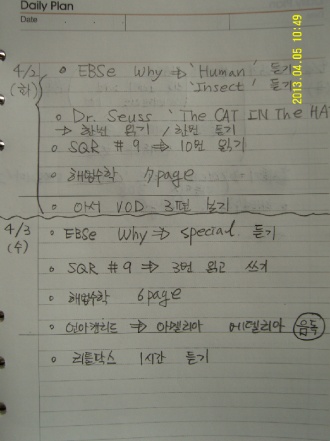 Daily Plan
Date
4/2 (화)
○ EBSe Why ⇒ 'Human' 듣기
'Insect' 듣기
○ Dr. Seuss 'The CAT IN The HA
→ 한번 읽기 / 한번 듣기
○ SQR # 9 ⇒ 10번 읽기
○ 해법수학 7page
○ 아서 VOD 3편 보기
4/3 (수)
○ EBSe Why ⇒ special 듣기
○ SQR # 9 ⇒ 3번 읽고 쓰기
○ 해법수학 6page
○ ⇒ 아멜리아 에델리아 음독
○ 리틀팍스 1시간 듣기
2013.04.05 10:49